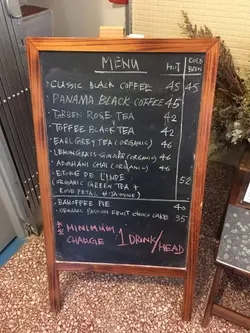 MENU
HOT
COLD BREW
- CLASSIC BLACK COFFEE 45 45
- PANAMA BLACK COFFEE 45
- GREEN ROSE TEA 42
- TOFFEE BLACK TEA 42
- EARL GREY TEA (ORGANIC) 46
- LEMONGRASS GINGER (ORGANIC) 46
- CHAI (ORGANIC) 46
- ETOILE DE L'INDE 52
(ORGANIC GREEN TEA +
ROSE PETAL + JASMINE)
- BANOFFEE PIE 40
- ORGANIC PASSION FRUIT CHOCO CAKE 35
MINIMUM
CHARGE : 1 DRINK/HEAD